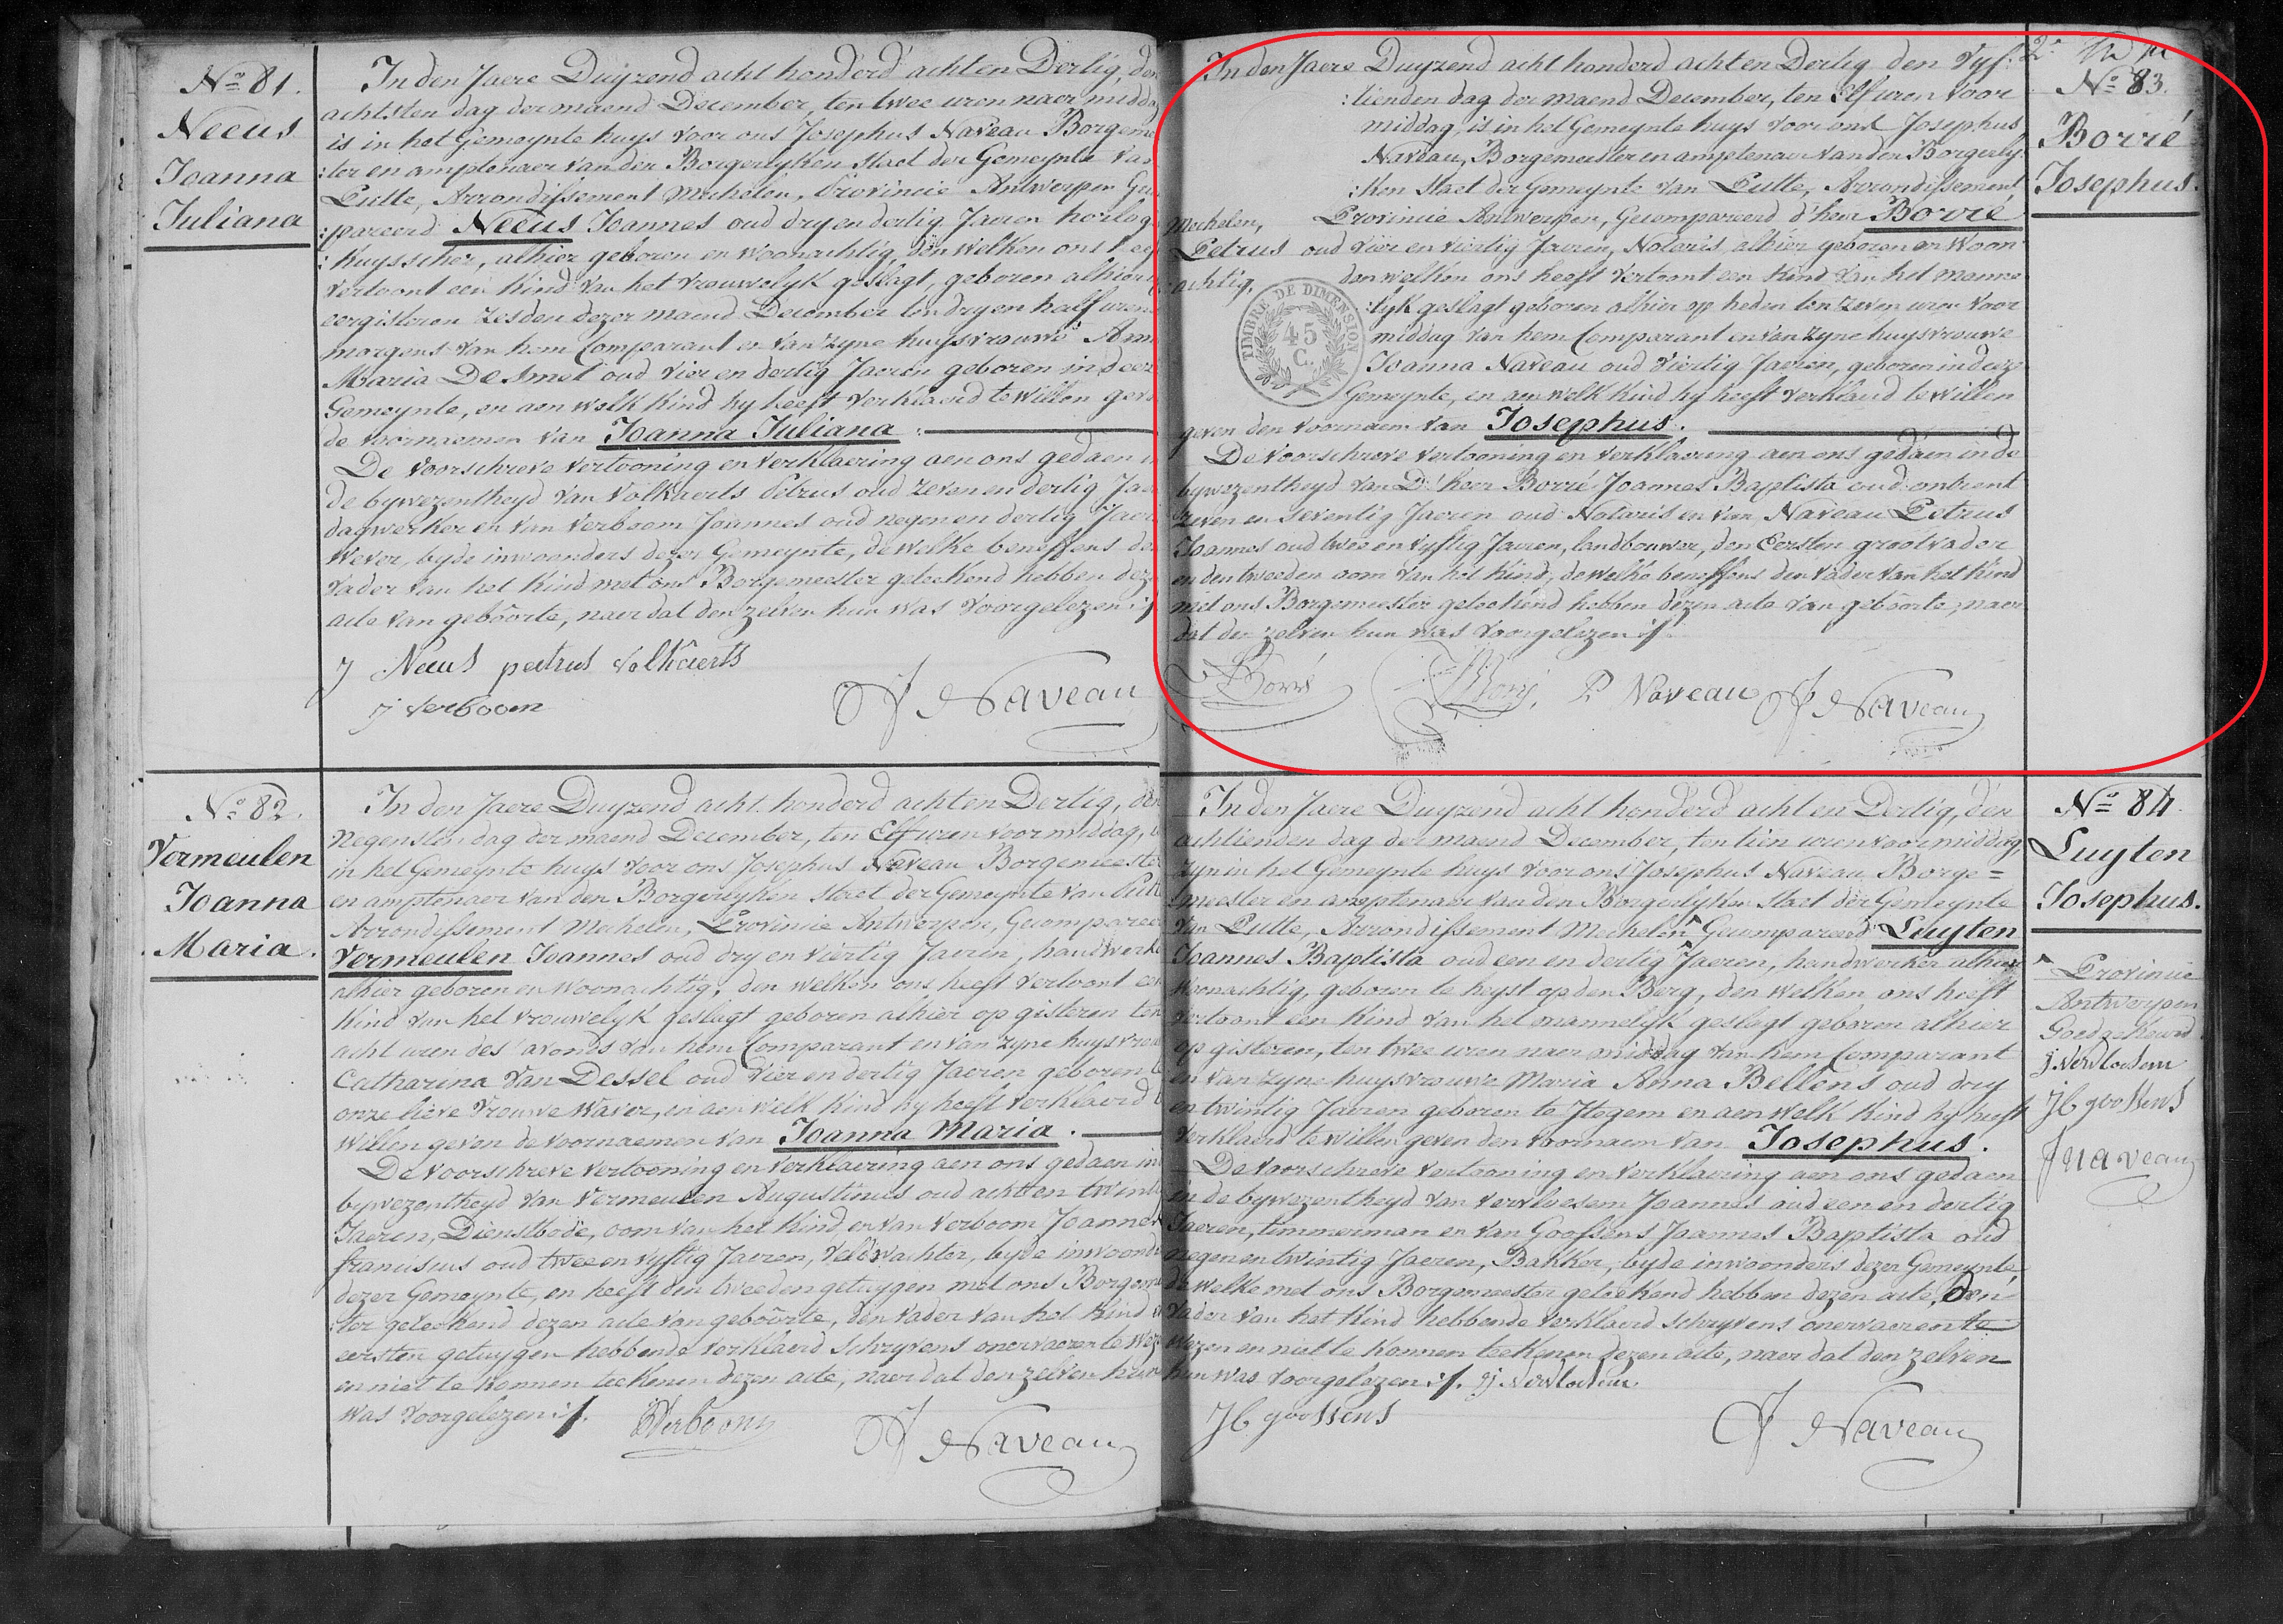 No 81.
Neeus
Joanna
Juliana
In den Jaere Duyzend acht honderd acht en Dertig, den
achtsten dag der maend December, ten twee uren naer midda
is in het Gemeynte huys voor ons Josephus Naveau Borgemee
:ter en amptenaer van den Borgerlyken staet der Gemeynte van
Putte, Arrondissement Mechelen, Provincie Antwerpen Ge
:pareerd Neeus Joannes oud dry en dertig Jaeren horlog
:huysscher, alhier geboren en woonachtig, den welken ons heeft
vertoont een kind van het vrouwelyk geslagt, geboren alhier
eergisteren zesden dezer maend December ten dry en half uren
morgens van hem Comparant en van zyne huysvrouwe Anna
Maria De Smet oud vier en dertig Jaeren geboren in deez
Gemeynte, en aen welk kind hy heeft verklaerd te willen geven
de voornaemen van Joanna Juliana.
De voorschreve vertooning en verklaering aen ons gedaen in
de bywezentheyd van Volkaerts Petrus oud zeven en dertig Jaer
dagwerker en van Verboom Joannes oud negen en dertig Jaer
wever, byde inwoonders dezer Gemeynte, de welke beneffens den
vader van het kind met ons Borgemeester geteekend hebben dezen
acte van geboôrte, naer dat den zelven hun was voorgelezen ./.
J Neeus petrus volkaerts
j verboom
J Naveau
No 82.
Vermeulen
Joanna
Maria.
In den Jaere Duyzend acht honderd acht en Dertig, den
negensten dag der maend December, ten Elf uren voor middag, is
in het Gemeynte huys voor ons Josephus Naveau Borgemeester
en amptenaer van den Borgerlyken staet der Gemeynte van Putte
Arrondissement Mechelen, Provincie Antwerpen, Gecompareerd
Vermeulen Joannes oud dry en viertig Jaeren, handwerker
alhier geboren en woonachtig, den welken ons heeft vertoont een
kind van het vrouwelyk geslagt geboren alhier op gisteren ten
acht uren des avonds van hem Comparant en van zyne huysvrouw
Catharina Van Dessel oud vier en dertig Jaeren geboren te
onze lieve vrouwe Waver, en aen welk kind hy heeft verklaerd te
willen geven de voornaemen van Joanna Maria.
De voorschreve vertooning en verklaering aen ons gedaen in
bywezentheyd van Vermeulen Augustinus oud acht en twintig
Jaeren, Dienstbode, oom van het kind, en van Verboom Joannes
franciscus oud twee en vyftig Jaeren, veldwachter, byde inwoonders
dezer Gemeynte, en heeft den tweeden getuygen met ons Borgemees
:ter geteekend dezen acte van geboôrte, den vader van het kind en
eersten getuygen hebbende verklaerd schryvens onervaeren te wezen
en niet te konnen teekenen dezen acte, naer dat den zelven hun
was voorgelezen ./.
Verboom
J Naveau
In den Jaere Duyzend acht honderd acht en Dertig den Vyf:
:tienden dag der maend December, ten Elf uren voor
middag, is in het Gemeynte huys voor ons Josephus
Naveau, Borgemeester en amptenaer van den Borgerly:
:ken staet der Gemeynte van Putte, Arrondissement
Mechelen, Provincie Antwerpen, Gecompareerd d'heer Borré
Petrus oud vier en viertig Jaeren, Notaris, alhier geboren en woon
:achtig, den welken ons heeft vertoont een kind van het manne
:lyk geslagt geboren alhier op heden ten zeven uren voor
middag van hem Comparant en van zyne huysvrouwe
Joanna Naveau oud viertig Jaeren, geboren in deze
Gemeynte, en aen welk kind hy heeft verklaerd te willen
geven den voornaem van Josephus.
TIMBRE DE DIMENSION
45
C.
De voorschreve vertooning en verklaering aen ons gedaen in de
bywezentheyd van D'heer Borré Joannes Baptista oud ontrent
zeven en seventig Jaeren oud Notaris en van Naveau Petrus
Joannes oud twee en vyftig Jaeren, landbouwer, den Eersten grootvader
en den tweeden oom van het kind, de welke beneffens den vader van het kind
met ons Borgemeester geteekend hebben dezen acte van geboôrte, naer
dat den zelven hun was voorgelezen ./.
Borré
P Naveau
J Naveau
No 83.
Borré
Josephus.
In den Jaere Duyzend acht honderd acht en Dertig, den
achtienden dag der maend December, ten tien uren voormiddag,
zyn in het Gemeynte huys voor ons Josephus Naveau Borge=
:meester en amptenaer van den Borgerlyken staet der Gemeynte
van Putte, Arrondissement Mechelen^ Gecompareerd Luyten
Joannes Baptista oud een en dertig Jaeren, handwerker alhier
woonachtig, geboren te heyst op den Berg, den welken ons heeft
vertoont een kind van het mannelyk geslagt geboren alhier
op gisteren, ten twee uren naer middag van hem Comparant
en van zyne huysvrouwe Maria Anna Bellens oud dry
en twintig Jaeren geboren te Itegem en aen welk kind hy heeft
verklaerd te willen geven den voornaem van Josephus.
De voorschreve vertooning en verklaering aen ons gedaen
in de bywezentheyd van Vervloesem Joannes oud een en dertig
Jaeren, timmerman en van Goossens Joannes Baptista oud
negen en twintig Jaeren, Bakker, byde inwoonders dezer Gemeynte,
de welke met ons Borgemeester geteekend hebben dezen acte, den
vader van het kind hebbende verklaerd schryvens onervaeren te
wezen en niet te konnen teekenen dezen acte, naer dat den zelven
hun was voorgelezen ./. j vervloesem
JB goossens
J Naveau
No 84.
Luyten
Josephus.
^ Provincie
Antwerpen
Goedgekeurd
j vervloesem
JB goossens
J naveau